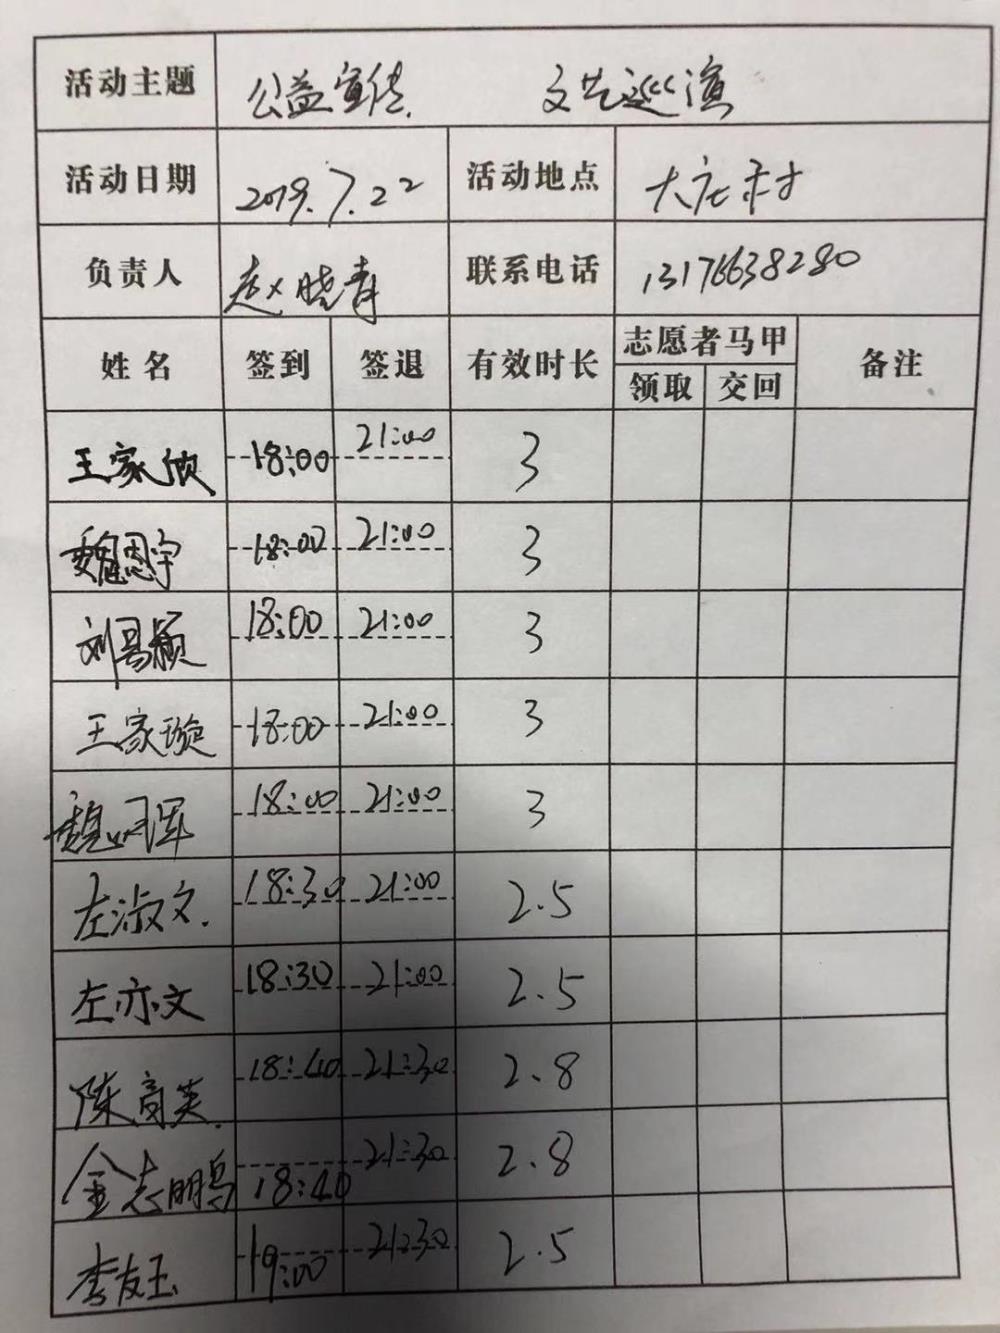 活动主题 公益宣传 文艺巡演
活动日期 2019.7.22 活动地点 大庄村
负责人 赵晓青 联系电话 13176638280
姓名 签到 签退 有效时长 志愿者马甲 备注
领取 交回
王家欣 18:00 21:00 3
魏恩宇 18:00 21:00 3
刘易颖 18:00 21:00 3
王家璇 18:00 21:00 3
魏 18:00 21:00 3
左淑文. 18:30 21:00 2.5
左亦文 18:30 21:00 2.5
陈育英. 18:40 21:30 2.8
金志鹏 18:40 21:30 2.8
李友玉 19:00 21:30 2.5